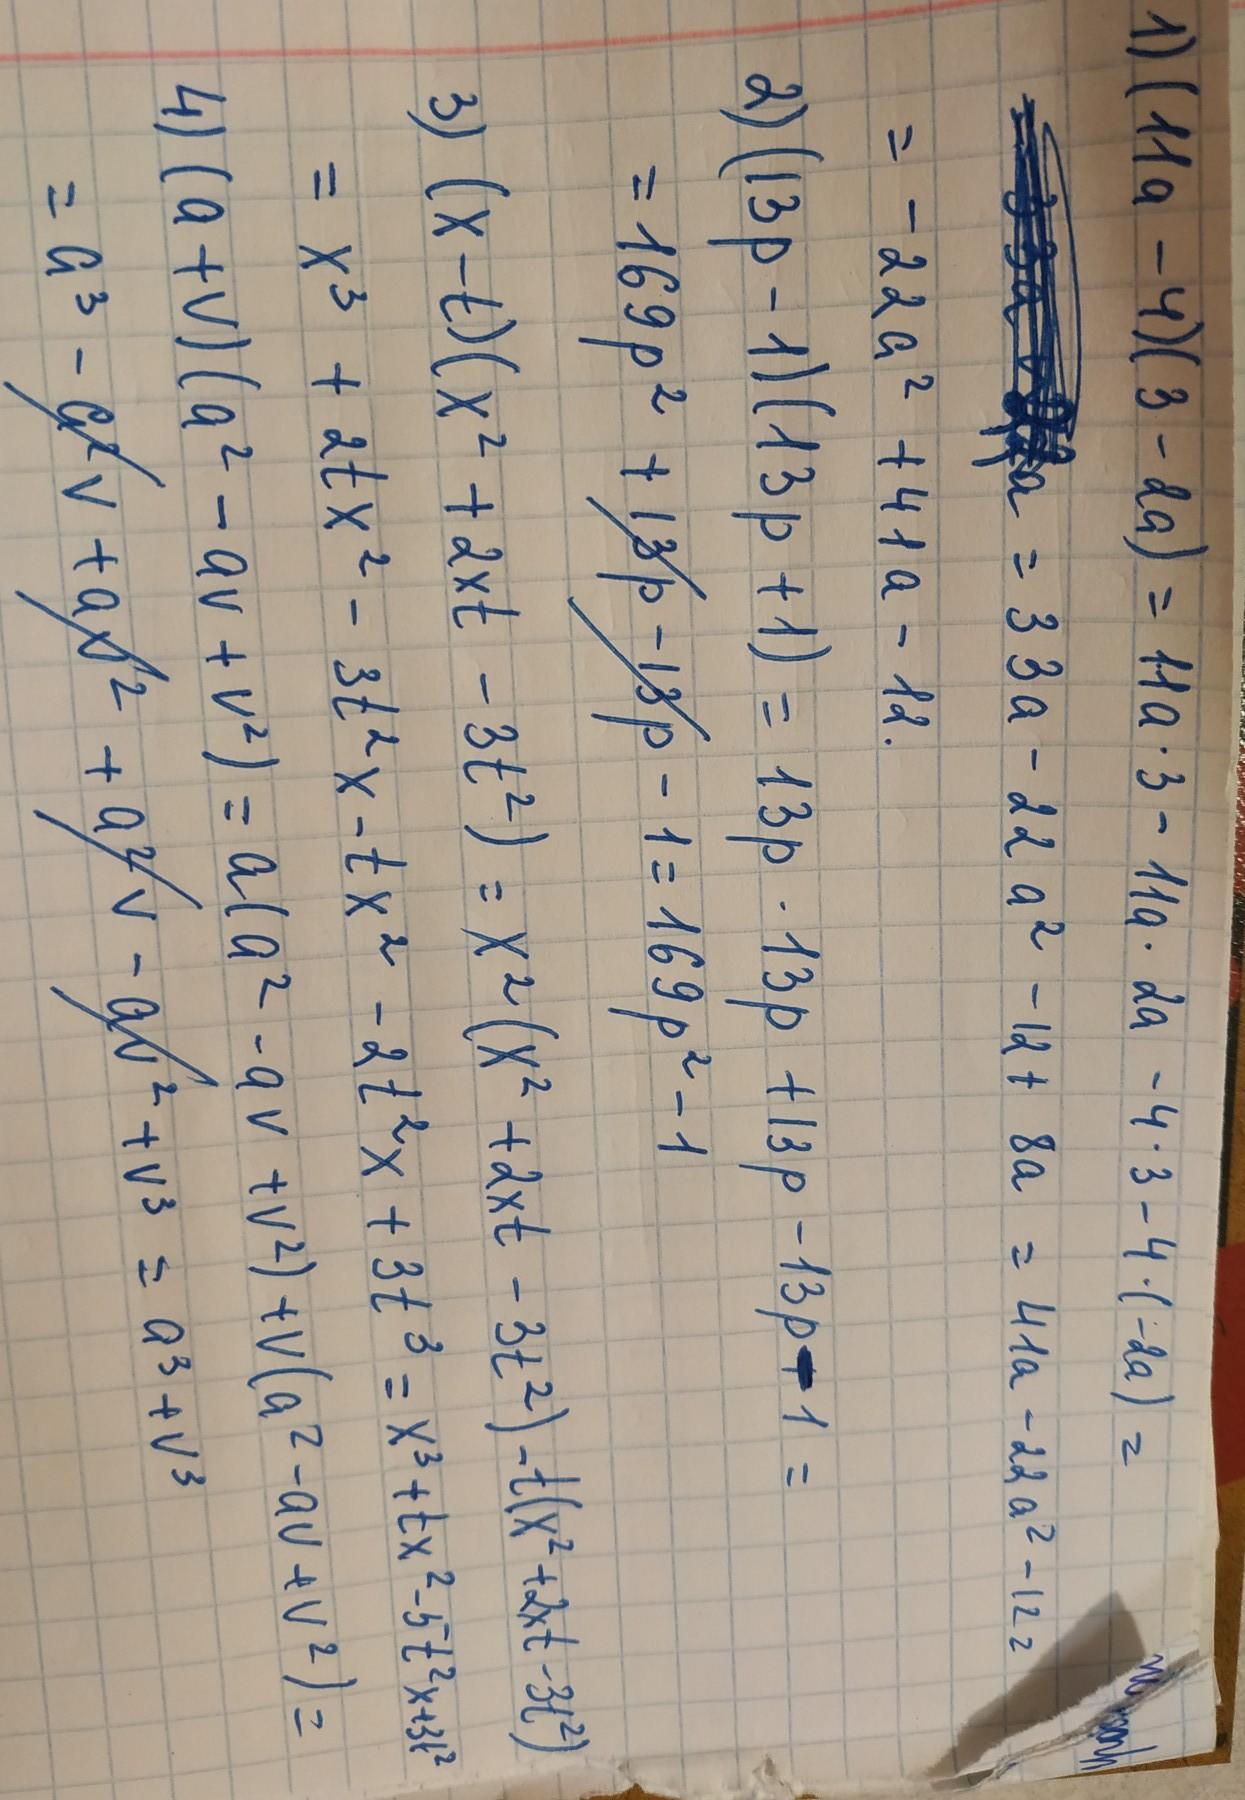 1) (11a - 4)(3 - 2a) = 11a · 3 - 11a · 2a - 4 · 3 - 4 · (-2a) =
= 33a - 22a² - 12 + 8a = 41a - 22a² - 12 =
= -22a² + 41a - 12.
2) (13p - 1)(13p + 1) = 13p · 13p + 13p - 13p - 1 =
= 169p² + 13p - 13p - 1 = 169p² - 1
3) (x - t)(x² + 2xt - 3t²) = x²(x² + 2xt - 3t²) - t(x² + 2xt - 3t²)
= x³ + 2tx² - 3t²x - tx² - 2t²x + 3t³ = x³ + tx² - 5t²x + 3t²
4) (a + v)(a² - av + v²) = a(a² - av + v²) + v(a² - av + v²) =
= a³ - a²v + av² + a²v - av² + v³ = a³ + v³